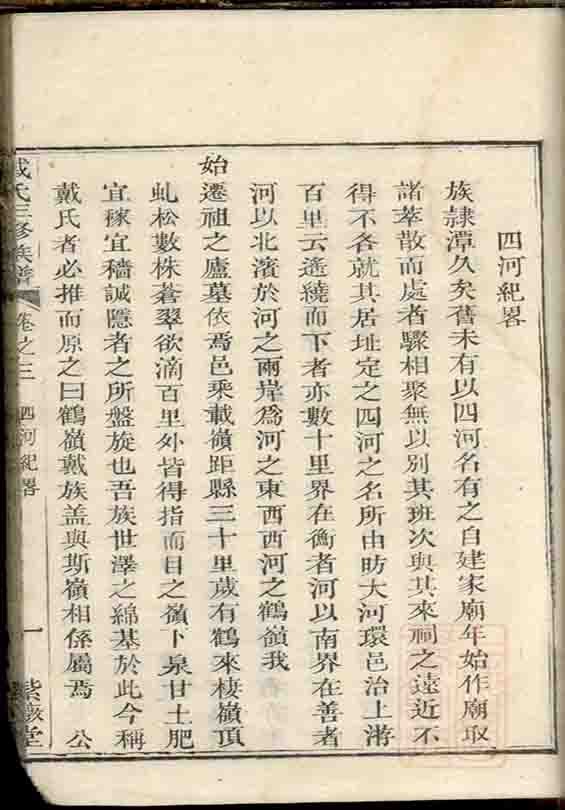 四河紀畧
族隷潭久矣舊未有以四河名有之自建家廟年始作廟取
諸萃散而處者驟相聚無以別其班次與其來祠之遠近不
得不各就其居址定之四河之名所由昉大河環邑治上游
百里云遙繞而下者亦數十里界在衡者河以南界在善者
河以北濱於河之兩岸為河之東西西河之鶴嶺我
始遷祖之廬墓依焉邑乘載嶺距縣三十里歲有鶴來棲嶺頂
虬松數株蒼翠欲滴百里外皆得指而目之嶺下泉甘土肥
宜稼宜穡誠隱者之所盤旋也吾族世澤之綿基於此今稱
戴氏者必推而原之曰鶴嶺戴族盖與斯嶺相係屬焉 公
戴氏三修族譜 卷之三 四河紀畧 一 紫薇堂